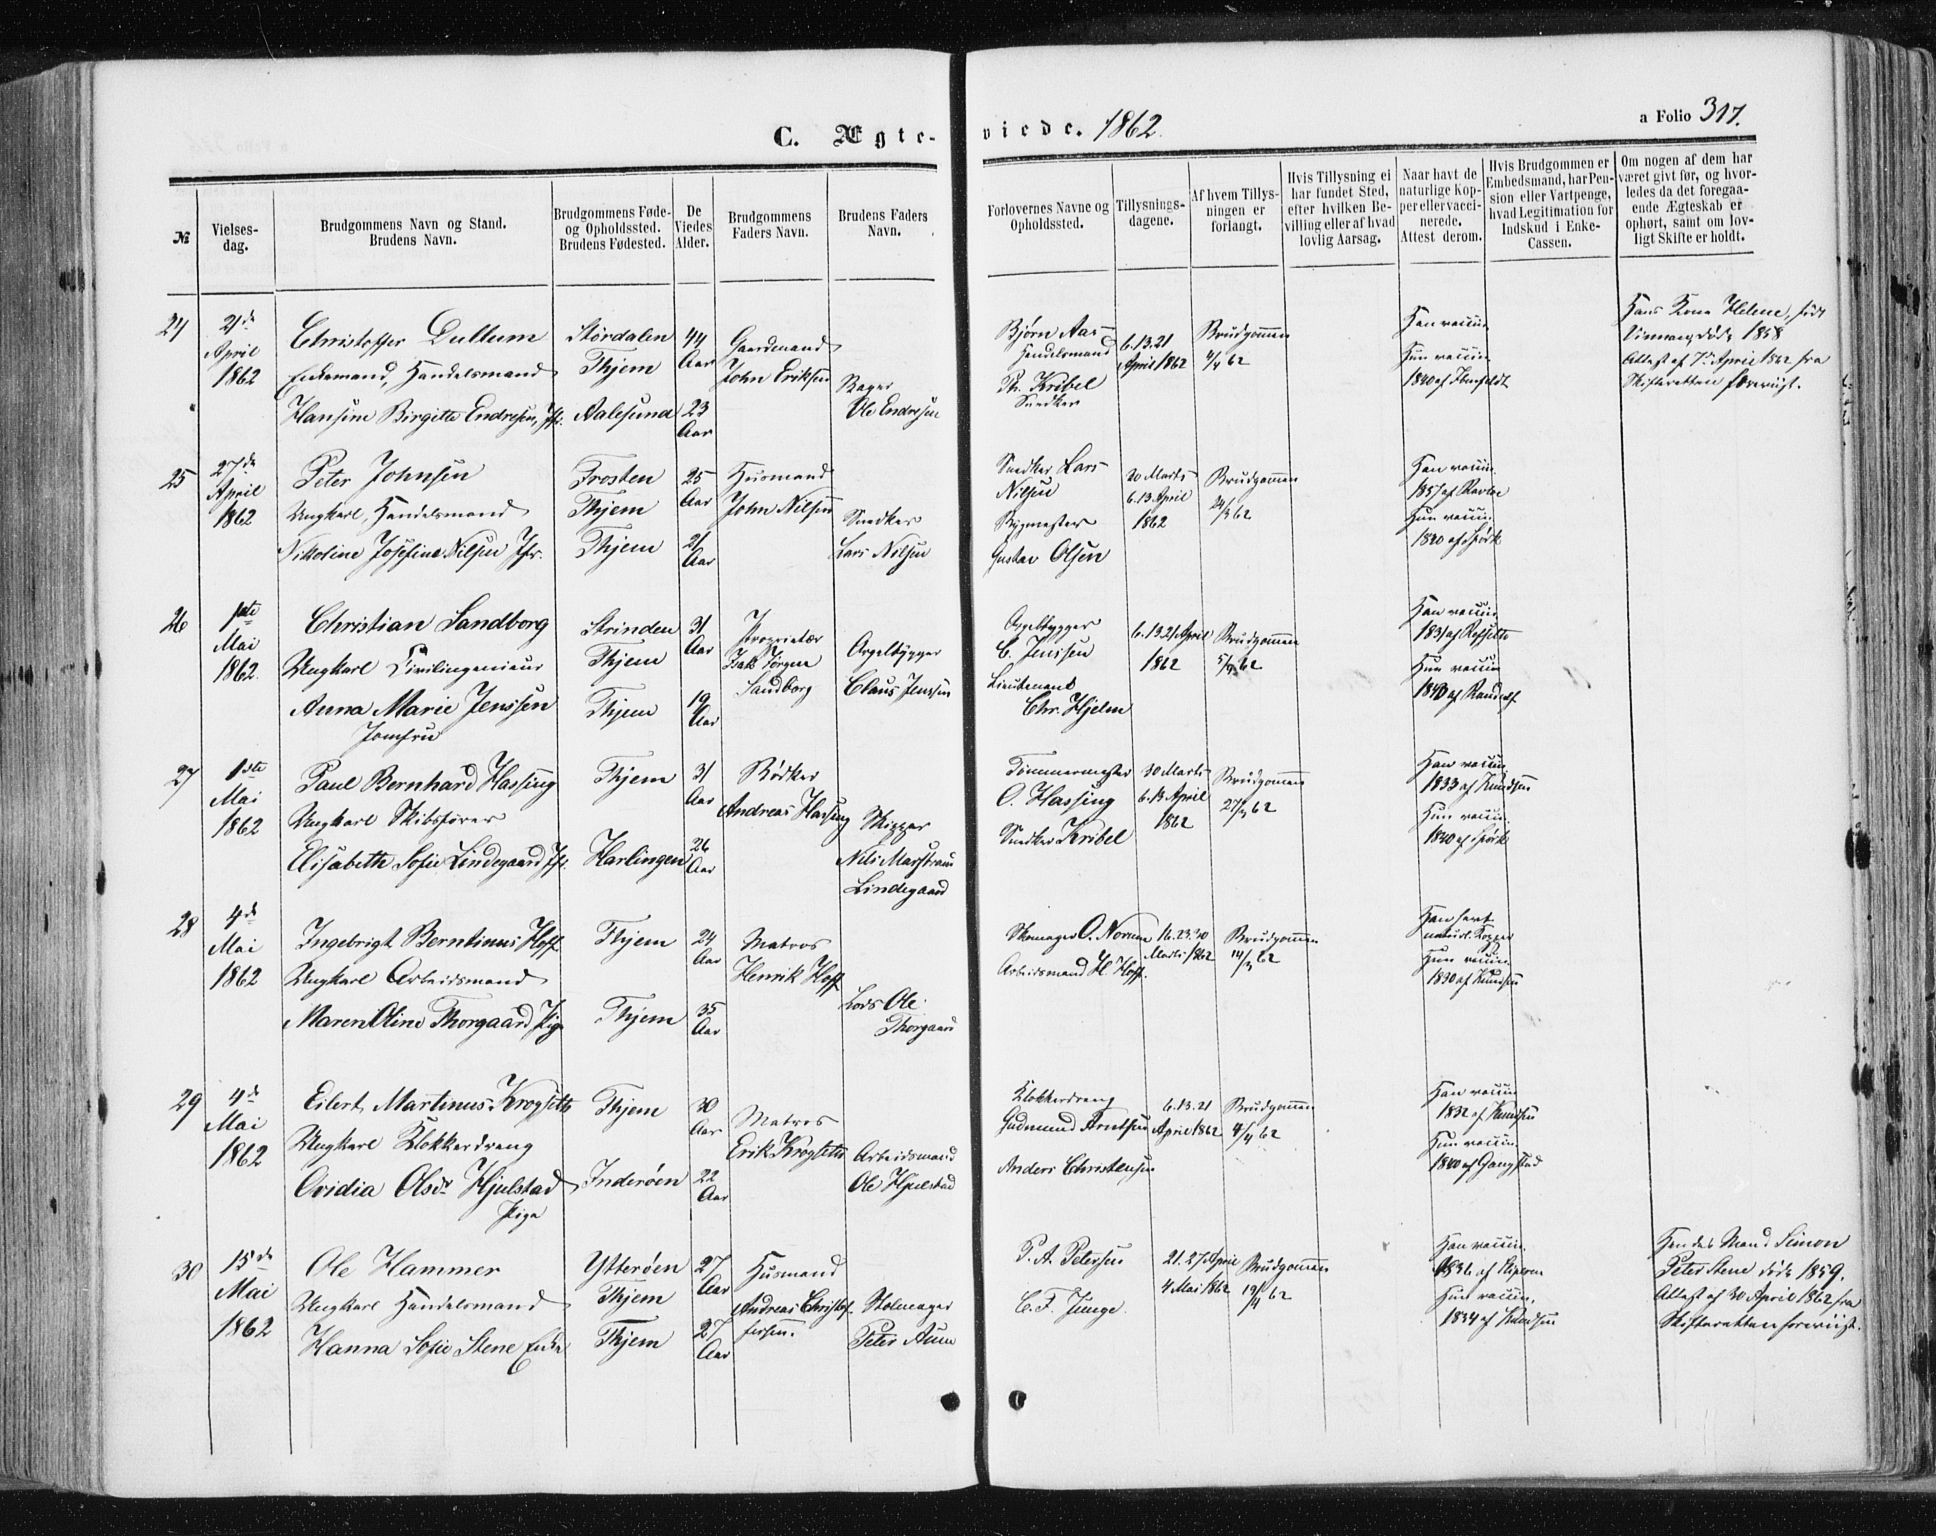 C. Ægteviede. 1862.
a Folio 317.
№
Vielsesdag.
Brudgommens Navn og Stand.
Brudens Navn.
Brudgommens Føde- og Opholdssted.
Brudens Fødested.
De Viedes Alder.
Brudgommens Faders Navn.
Brudens Faders Navn.
Forlovernes Navne og Opholdssted.
Tillysningsdagene.
Af hvem Tillysningen er forlangt.
Hvis Tillysning ei har fundet Sted, efter hvilken Bevilling eller af hvad lovlig Aarsag.
Naar havt de naturlige Kopper eller vaccinerede. Attest derom.
Hvis Brudgommen er Embedsmand, har Pension eller Vartpenge, hvad Legitimation for Indskud i Enke-Cassen.
Om nogen af dem har været givt før, og hvorledes da det foregaaende Ægteskab er ophørt, samt om lovligt Skifte er holdt.
24
21de April 1862
Christoffer Dullum
Enkemand, Handelsmand
Hansine Birgitte Endresen, Jfr.
Stördalen
Thjem
Aalesund
44 Aar
23 Aar
Gaardmand
John Eriksen
Bager
Ole Endresen
Bjørn Aas
Handelsmand
Th. Kribel
Snedker
6. 13. 21 April 1862
Brudgommen
4/4 62
Han vaccin
Hun vaccin
1840 af
Hans Kone Helene, født
døde 1858
Attest af 7de April 1862 fra
Skifteretten
25
27de April 1862
Peter Johnsen
Ungkarl, Handelsmand
Nikoline Josefine Nilsen Jfr.
Frosten
Thjem
Thjem
25 Aar
21 Aar
Husmand
John Nilsen
Snedker
Lars Nilsen
Snedker Lars
Nilsen
Gustav Olsen
30 Marts
6. 13 April
1862
Brudgommen
Han vaccin.
1857 af
Hun vaccin
1840 af Spörk
26
1ste Mai 1862.
Christian Sandborg
Ungkarl Civilingenieur
Anna Marie Jenssen
Jomfru
Strinden
Thjem
Thjem
31 Aar
19 Aar
Proprietær
Isak Jörgen
Sandborg
Orgelbygger
Claus Jenssen
Orgelbygger
C. Jenssen
Lieutenant
Chr. Hjelm
6. 13. 21 April
1862
Brudgommen
Han vaccin
1831 af
Hun vaccin
27
1ste Mai 1862
Paul Bernhard Hassing
Ungkarl Skibsfører
Elisabeth Sofie Lindegaard Jfr.
Thjem
Harlingen
31 Aar
26 Aar
Bödker
Andreas Hassing
Skipper
Nils Marstrand
Lindegaard
Tömmermester
O. Hassing
Snedker Kribel
30 Marts
6. 13 April
1862
Brudgommen
27/3 62
Han vaccin.
1833 af Knudsen
Hun vaccin.
1840 af Spörk
28
4de Mai 1862
Ingebrigt Berntinus Hoff
Ungkarl Arbeidsmand
Maren Oline Thorgaard Pige
Thjem
Thjem
24 Aar
35 Aar
Matros
Henrik Hoff
Lods Ole
Thorgaard
Skomager O. Norum
Arbeidsmand H. Hoff
16. 23. 30
Marts 1862
Brudgommen
14/3 62
Han havt
naturl. Kopper
Hun vaccin.
1830 af Knudsen
29
4de Mai 1862
Eilert Martinus Krogsæth
Ungkarl Klokkerdreng
Ovidia Olsdr Hjulstad
Pige
Thjem
Inderöen
30 Aar
22 Aar
Matros
Erik Krogsæth
Arbeidsmand
Ole Hjulstad
Klokkerdreng
Gudmund Arntsen
Anders Christensen
6. 13. 21
April 1862
Brudgommen
4/4 62
Han vaccin
1832 af Knudsen
Hun vaccin.
1840 af Gangstad
30
15de Mai 1862
Ole Hammer
Ungkarl Handelsmand
Hanna Sofie Stene Enke
Ytteröen
Thjem
Thjem
27 Aar
27 Aar
Husmand
Andreas Christoffersen.
Stolmager
Peter Aune
P. A. Petersen
C. F. Junge.
21. 27 April
4 Mai 1862
Brudgommen
19/4 62
Han vaccin.
1836 af
Hun vaccin.
1834 af Knudsen
Hendes Mand Simon
Peter Stene døde 1859.
Attest af 30 April 1862 fra
Skifteretten foreviist.